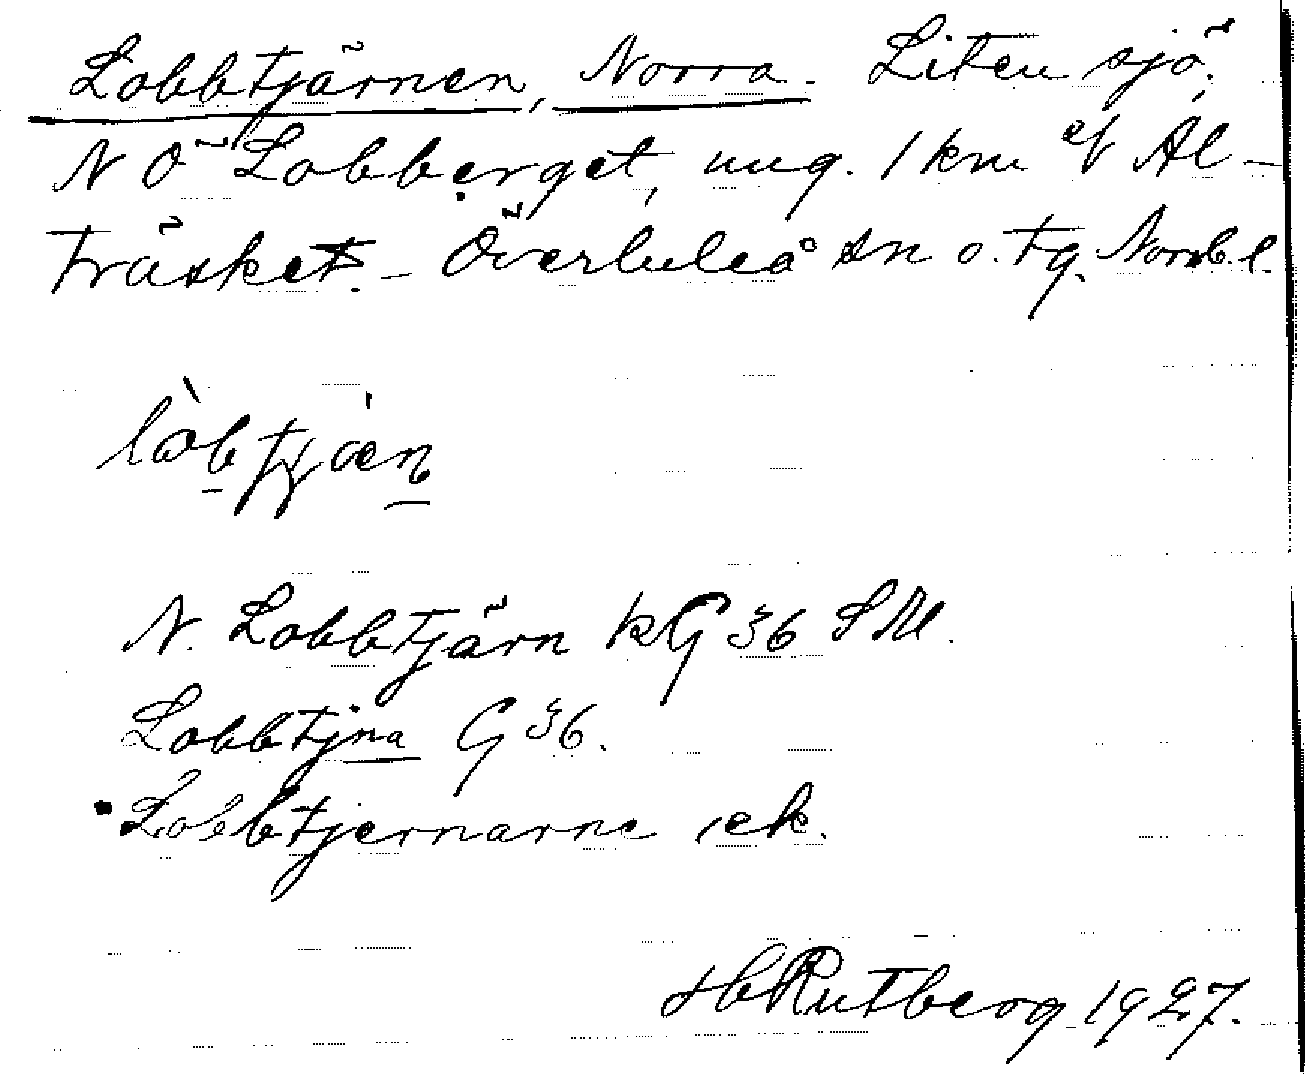 Lobbtjärnen, Norra. Liten sjö,
NÖ Lobberget, ung. 1 km Al-
träsket. - Överluleå sn o. tg. Norrb. l.
N. Lobbtjärn kG 36 SM.
Lobbtjna G 36.
Lobbtjernarne, ek.
H Rutberg 1927.